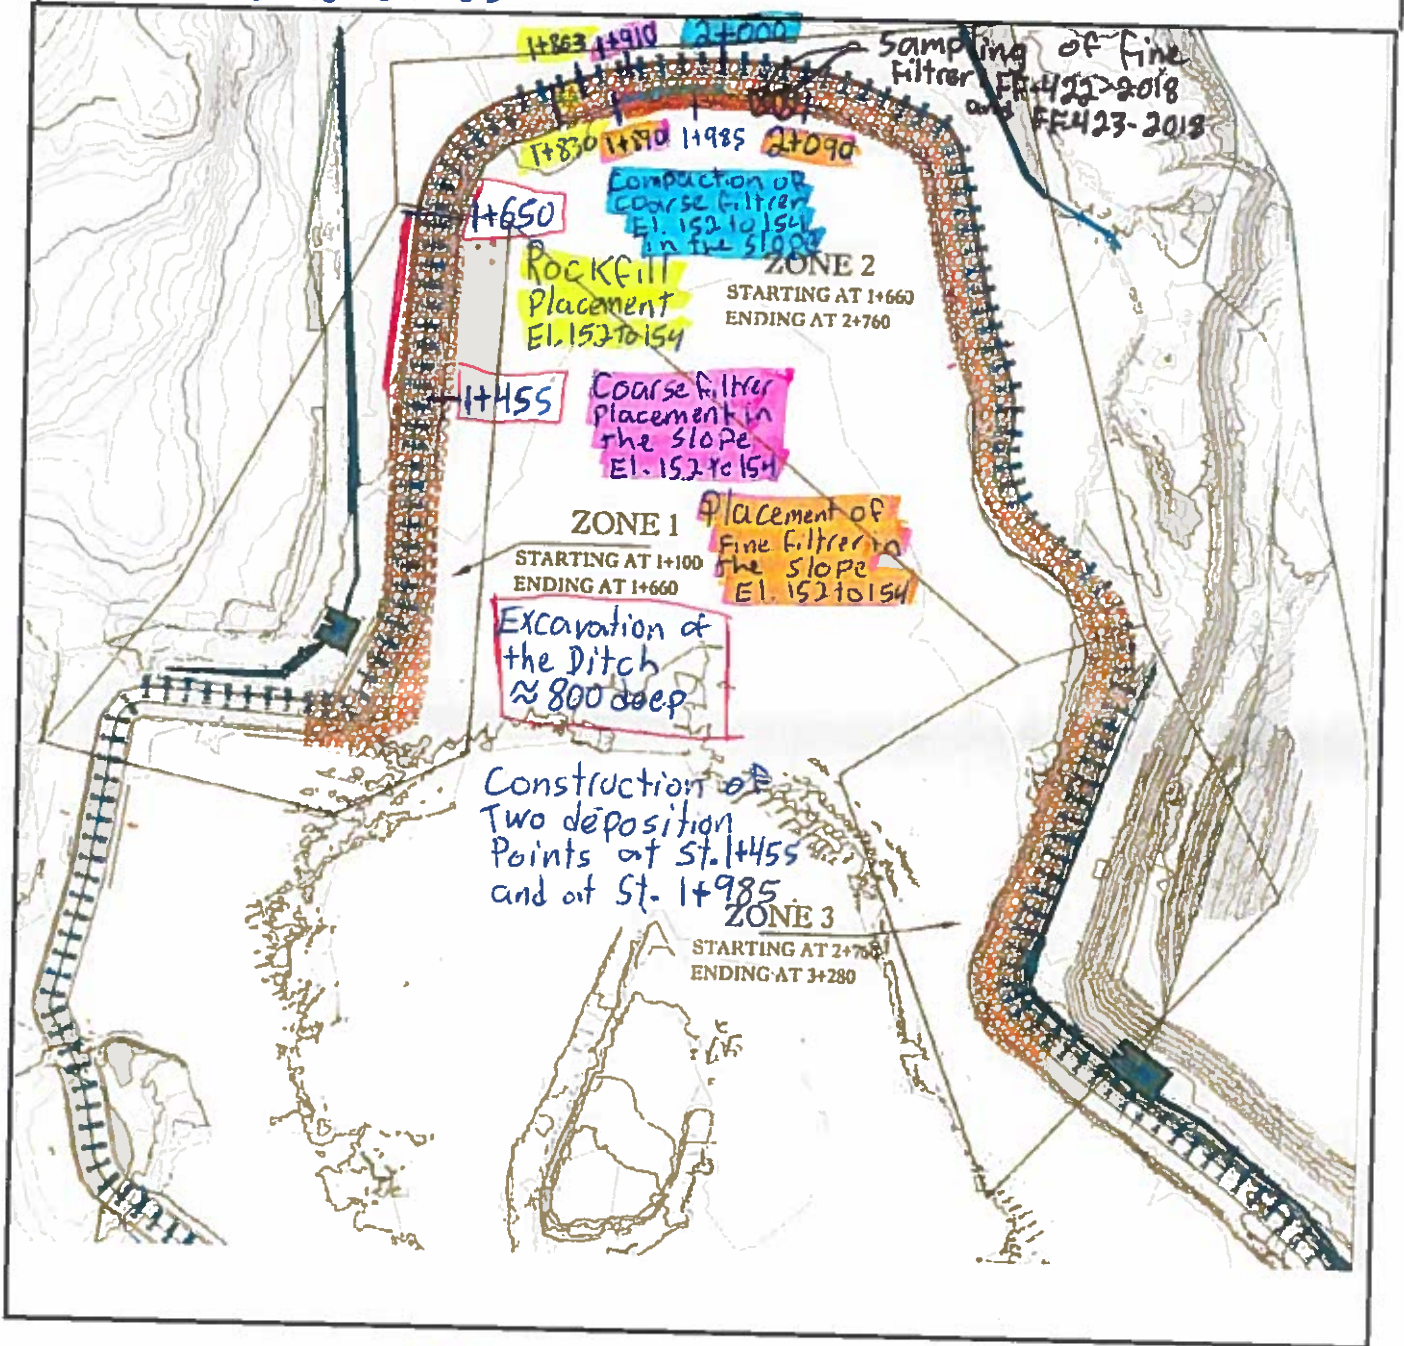 1+863 1+910 2+000
Sampling of fine
Filtrer FF-422-2018
and FF423-2018
1+830 1+890 1+985 2+090
1+650
Compaction of
Coarse Filtrer
El. 152 to 154
in the Slope
Rockfill
Placement
El. 152 to 154
ZONE 2
STARTING AT 1+660
ENDING AT 2+760
1+455
Coarse filtrer
placement in
the Slope
El. 152 to 154
ZONE 1
STARTING AT 1+100
ENDING AT 1+660
Placement of
Fine Filtrer in
the Slope
El. 152 to 154
Excavation of
the Ditch
≈ 800 deep
Construction of
Two deposition
Points at St. 1+455
and at St. 1+985
ZONE 3
STARTING AT 2+760
ENDING AT 3+280